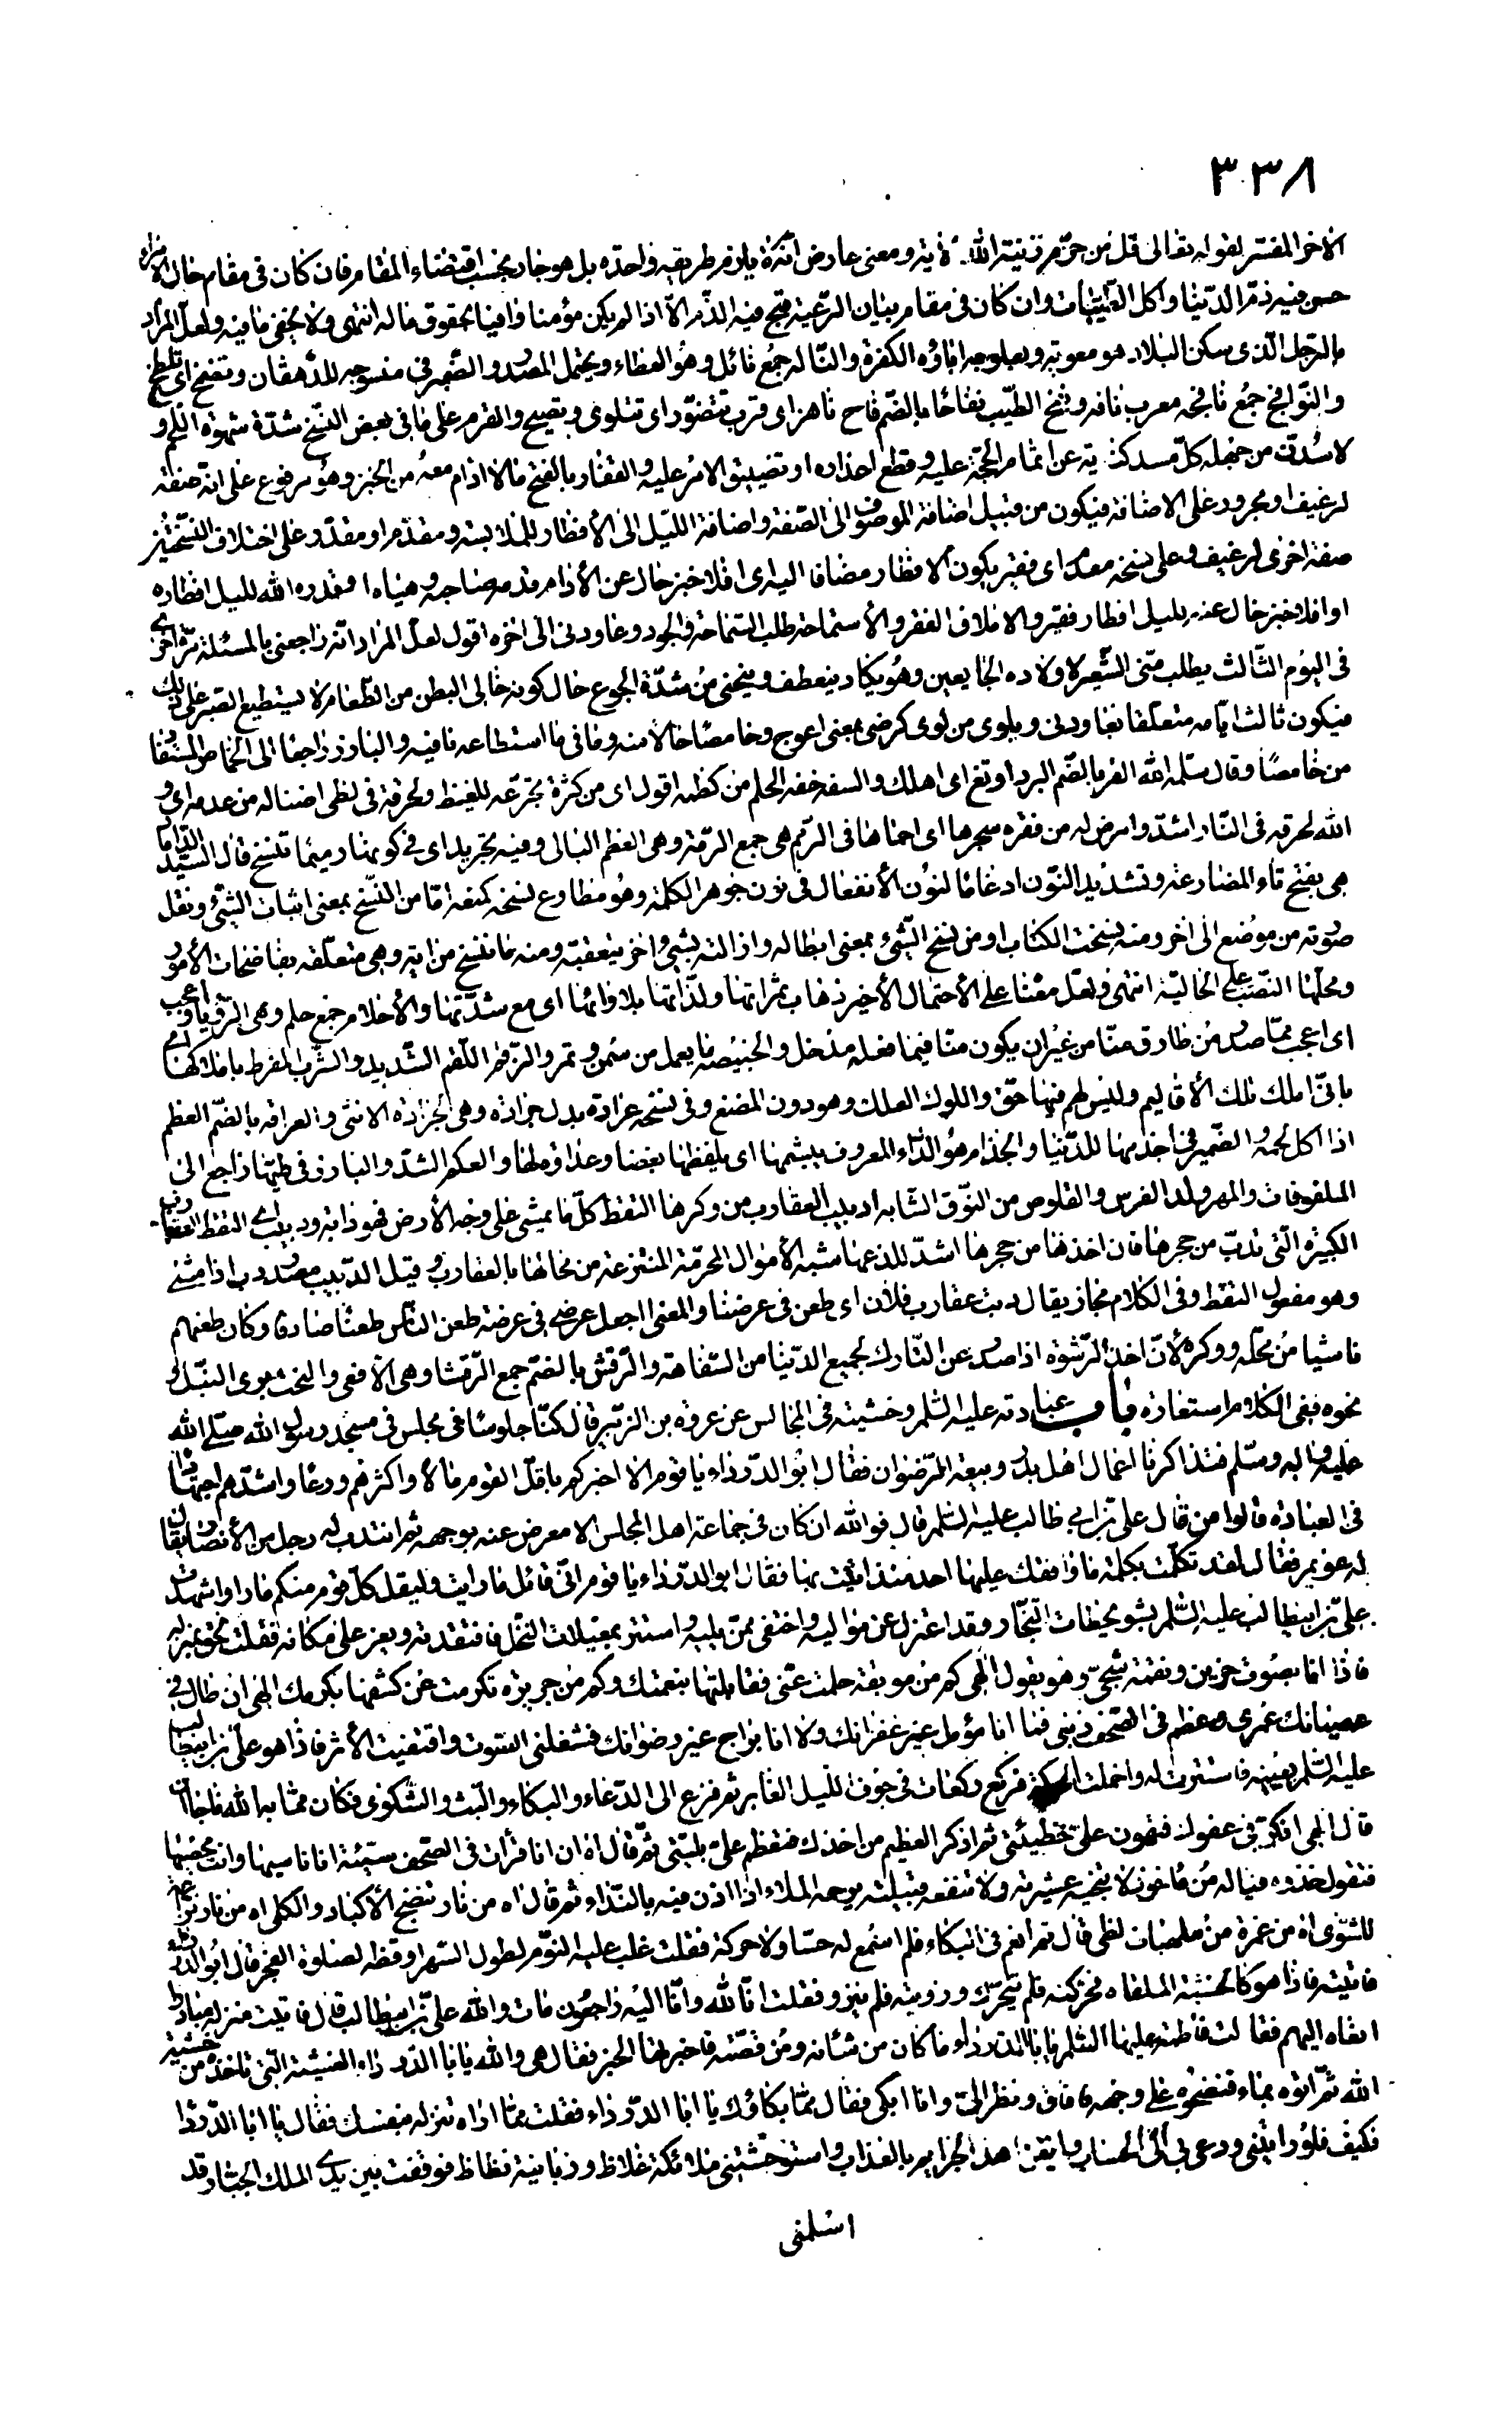 ٣٣٨
الاخر المفسر لقوله تعالى قل من حرّم زينة الله ومعنى عارض انّ يلزم طريقه واحدة بل هو جار بحسب اقتضاء المقام فان كان فى مقام حال
حسن فيه ذمّ الدّنيا واكل الطّيّبات وان كان فى مقام بيان الرّعية قبح فيه الذّم الّا اذا لم يكن مؤمنا وافيا بحقوق ماله انتهى ولا يخفى ما فيه ولعلّ المراد
بالرّجل الّذى سكن البلاد هو معوية وبعلوجه اباؤه الكفرة والنّاله جمع نائل وهو العطاء ويحتمل المصدر والضّمير فى منسوجه للدّهقان وتنفخ اى
والنّوافج جمع نافجه معرب نافه وفتح الطّيب نفاحا بالضّم فاح ناهز اى قرب تتضوّر اى تتلوى وتصيح والقرم على ما فى بعض النّسخ شدّة شهوة اللّحم و
لا سدّت من جهله كلّ مسد عن اتمام الحجّة عليه وقطع اعذاره او تضييق الامر عليه والقفار بالفتح مالا ادام معه من الخبز وهو مرفوع على انّه صفة
لرغيف او مجرور على الاضافة فيكون من قبيل اضافة الموصوف الى الصّفة واضافة اللّيل الى الأفطار للملابسة ومقدّم او مقدّر على اختلاف النّسختين
صفة اخرى لرغيف وعلى نسخة اى فقير يكون الافطار مضافا اليه اى افلا خبز خال عن الأدام قدمه صاحبه وهياه او قدره الله لليل افطاره
او افلا خبز خال عنه بليلى افطار فقير والاملاق الفقر والأستماحة طلب السّماحة والجود وعاودنى الى اخره اقول لعلّ المراد انّه راجعنى بالمسئلة مرّة اخرى
فى اليوم الثّالث يطلب منّى الشّعير لاولاده الجايعين وهو يكاد ينعطف وينحنى من شدّة الجوع حال كونه خالى البطن من الطّعام لا يستطيع الصّبر على ذلك
فيكون ثالث ايّامه متعلّقا بعاودنى ويلوى من لوى كرضى بمعنى اعوج وخامصا حالا منه وما فى ما استطاعه نافيه والبارز راجعا الى الخماص
من خامصا وقال سلّمه الله القر بالضّم البرد اوتغ اى اهلك والسفه خفه الحلم من كظمه اقول اى من كثرة تجرّعه للغيظ ولحرقة فى لظى اضناله من عدمه اى و
الله لحرقه فى النّار اشدّ وامرض له من فقره سجرها اى احماها فى الرّمم هى جمع الرّمّة وهى العظم البالى وفيه تجريد اى فى كونها رميما تنسخ قال السّيّد الدّاماد
هى بفتح تاء المضارعة وتشديد النّون ادغاما لنون الأنفعال فى نون جوهر الكلمة وهو مطاوع نسخه كمنعه امّا من النّسخ بمعنى اثبات الشّئ ونقل
صورته من موضع الى اخر ومنه نسخت الكتاب او من نسخ الشّئ بمعنى ابطاله وازالته بشئ اخر يتعقبه ومنه ما ننسخ من اية وهى متعلّقه بفاضحات الأمور
ومحلّها النّصب على الحاليّة انتهى ولعلّ معنا على الأحتمال الأخير ذهاب ثمراتها ولذّاتها بلا وائها اى مع شدّتها والأحلام جمع حلم وهى الرّؤيا واعجب
اى اعجب ممّا صدر من طارق منّا من غير ان يكون منّا فيما فعله مدخل والخبيصه ما يعمل من سمن وتمر والزّقم اللّقم الشّديد والشّرب المفرط باملاكها اى
بانّ املك تلك الأقاليم وليس لهم فيها حقّ واللوك العلك وهو دون المضغ وفى نسخة عرادة بدل جرادة وهى الجرادة الانثى والعراقه بالضّم العظم
اذا اكل لحمه والضّمير فى اجذمها للدّنيا والجذام هو الدّاء المعروف يبشمها اى يلفظها بغضا وعذافه لها والعكم الشدّ والبارز فى طيّها راجع الى
الملفوفات والمهر ولد الفرس والقلوص من النّوق الشّابه ادبيب العقارب من وكرها التقط كلّ ما يمشى على وجه الأرض فهو دابه ودبيب اى التقط العقارب
الكبيرة الّتى تدبّ من جحرها فان اخذها من جحرها اشدّ للذعها شبه الأموال المحرّمة المنتزعة من محالها بالعقارب وقيل الدّبيب مصدر دب اذا مشى
وهو مفعول التقط وفى الكلام مجاز يقال دبت عقارب فلان اى طعن فى عرضنا والمعنى اجعل عرضى فى عرضة طعن النّاس طعنا صادقا وكان طعنهم
ماشيا من محلّه ووكره لأنّ اخذ الرّشوة اذا صدر عن التّارك لجميع الدّنيا من السّفاهة والرّقش بالضّم جمع الرّقشا وهى الأفعى والنحت برى النبّل و
نحوه ففى الكلام استعارة باب عبادته عليه السّلم وخشيته فى المجالس عن عروة بن الزّبير قال كنّا جلوسا فى مجلس فى مسجد رسول الله صلّى الله
عليه واله وسلّم فتذاكرنا اعمال اهل بدر وبيعة الرّضوان فقال ابو الدّرداء يا قوم الا اخبركم باقلّ القوم مالا واكثرهم ورعا واشدّهم اجتهادا
فى العبادة قالوا من قال علىّ بن ابى طالب عليه السّلم قال فوالله ان كان فى جماعة اهل المجلس الا معرض عنه بوجهه ثم انتدب له رجل من الأنصار فقال
له عويمر فقال لقد تكلّمت بكلمة ما وافقك عليها احد منذ اتيت بها فقال ابو الدّرداء يا قوم انّى قائل ما رايت وليقل كلّ قوم منكم ما راوا شهدت
علىّ بن ابيطالب عليه السّلم بشويحطات النّجّار وقد اعتزل عن مواليه واختفى ممّن يليه واستتر بمغيلات النّخل فافتقدته وبعد على مكانه فقلت لحق بمنزله
فاذا انا بصوت حزين ونغمة شجىّ وهو يقول الهى كم من موبقة حلمت عنّى فقابلتها بنعمتك وكم من جريرة تكرمت عن كشفها بكرمك الهى ان طال فى
عصيانك عمرى وعظم فى الصّحف ذنبى فما انا مؤمل غير غفرانك ولا انا براج غير رضوانك فشغلنى الصّوت واقتفيت الأثر فاذا هو علىّ بن ابيطالب
عليه السّلم بعينه فاستترت له واخملت الحركة فركع ركعات فى جوف اللّيل الغابر ثم فزع الى الدّعاء والبكاء والبّث والشّكوى فكان ممّا به الله ناجاه ان
قال الهى افكّر فى عفوك فتهون علىّ خطيئتى ثم اذكر العظيم من اخذك فتعظم علىّ بليّتى ثمّ قال اه ان انا قرأت فى الصّحف سيّئة انا ناسيها وانت محصيها
فتقول خذوه فياله من ماخوذ لا تنجيه عشيرته ولا تنفعه قبيلته يرحمه الملاء اذا اذن فيه بالنّداء ثم قال اه من نار تنضج الأكباد والكلى اه من نار نزاعة
للشّوى اه من غمرة من ملهبات لظى قال ثم انغمر فى البكاء فلم اسمع له حسّا ولا حركة فقلت غلب عليه النّوم لطول السّهر اوقظه لصلوة الفجر قال ابو الدّرداء
فاتيته فاذا هو كالخشبة الملقاه فحرّكته فلم يتحرّك وزويته فلم ينزو فقلت انّا لله وانّا اليه راجعون مات والله علىّ بن ابيطالب قال فاتيت منزله مبادرا
انعاه اليهم فقالت فاطمة عليها السّلم يا ابا الدّرداء ما كان من شانه ومن قصّته فاخبرتها الخبر فقال هى والله يا ابا الدّرداء الغشية الّتى تاخذه من خشية
الله ثمّ اتوه بماء فنضحوه على وجهه فافاق ونظر الىّ وانا ابكى فقال ممّا بكاؤك يا ابا الدّرداء فقلت ممّا اراه تنزله بنفسك فقال يا ابا الدّرداء
فكيف فلو رايتنى ودعى بى الى الحساب وايقن اهل الجرايم بالعذاب واستوحشتنى ملائكة غلاظ وزبانية فظاظ فوقفت بين يدى الملك الجبّار قد
اسلمنى